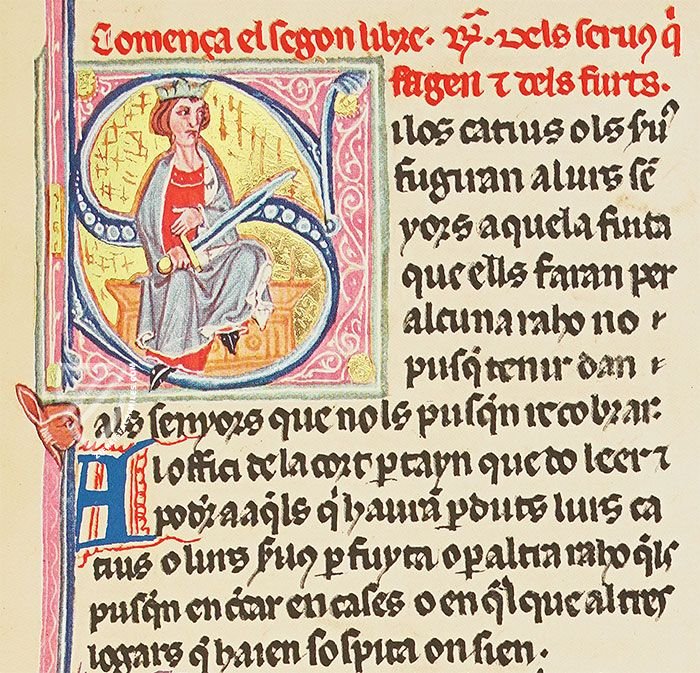 Comença el segon libre. Rͣ. Dels seruꝰ q̄
fugen ⁊ dels furts.
Silos catius ols sꝰuꝰ
fugiran a lurs sē
yors aquela fuita
que ells faran per
alcuna raho no
pusq̄ tenir dan
als senyors que nols pusq̄n recobrar.
Al offici de la cort ꝑtayn que do leer ⁊
poder a aq̄ls q̄ haurā ꝑduts lurs ca
tius o lurs ꝑ fuyta o ꝑ altra raho q̄ls
pusq̄n encercar en cases o en q̄l que altres
logars q̄ haien sospita on sien.